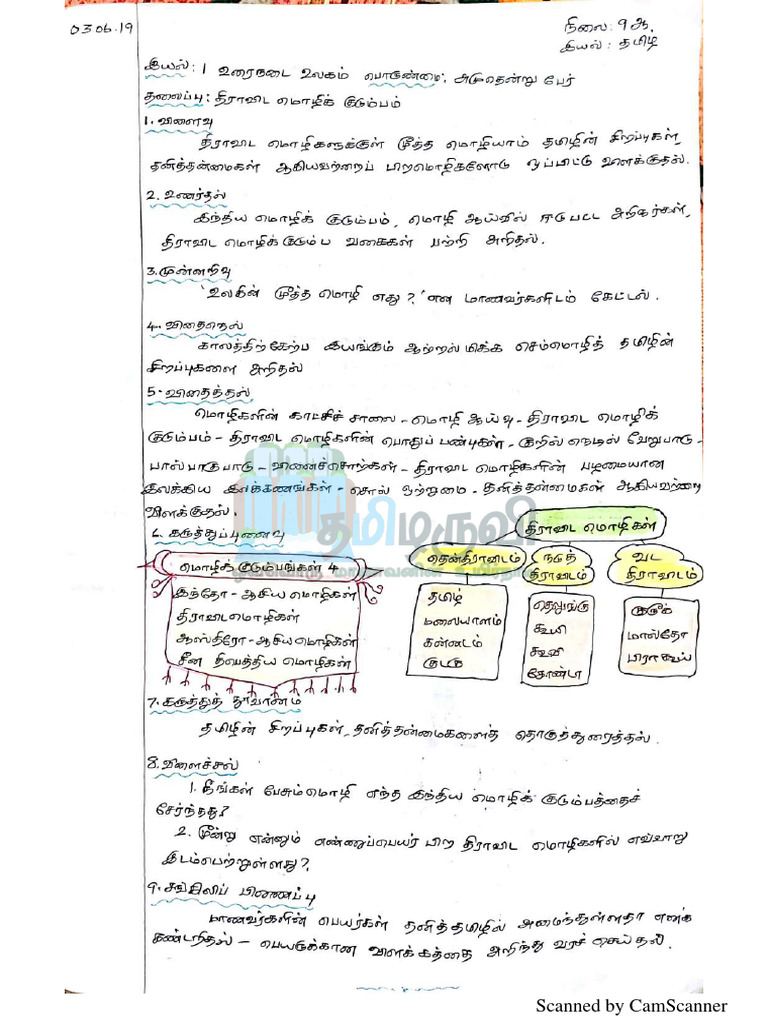 03.06.19
நிலை: 9 ஆ.
இயல் : தமிழ்
இயல் : 1 உரைநடை உலகம் பொருண்மை: அமுதென்று பேர்
தலைப்பு : திராவிட மொழிக் குடும்பம்
1. விளைவு
திராவிட மொழிகளுக்குள் மூத்த மொழியாம் தமிழின் சிறப்புகள்,
தனித்தன்மைகள் ஆகியவற்றைப் பிறமொழிகளோடு ஒப்பிட்டு விளக்குதல்.
2. உணர்தல்
இந்திய மொழிக் குடும்பம், மொழி ஆய்வில் ஈடுபட்ட அறிஞர்கள்,
திராவிட மொழிக்குடும்ப வகைகள் பற்றி அறிதல்.
3. முன்னறிவு
'உலகின் மூத்த மொழி எது?' என மாணவர்களிடம் கேட்டல்.
4. விதைநெல்
காலத்திற்கேற்ப இயங்கும் ஆற்றல் மிக்க செம்மொழித் தமிழின்
சிறப்புகளை அறிதல்
5. விதைத்தல்
மொழிகளின் காட்சிச் சாலை - மொழி ஆய்வு - திராவிட மொழிக்
குடும்பம் - திராவிட மொழிகளின் பொதுப் பண்புகள் - குறில் நெடில் வேறுபாடு -
பால்பாகுபாடு - வினைச்சொற்கள் - திராவிட மொழிகளின் பழமையான
இலக்கிய இலக்கணங்கள் - சொல் ஒற்றுமை - தனித்தன்மைகள் ஆகியவற்றை
விளக்குதல்.
தமிழருவி
6. கருத்துப்புனைவு
மொழிக் குடும்பங்கள் 4
இந்தோ - ஆசிய மொழிகள்
திராவிட மொழிகள்
ஆஸ்திரோ - ஆசிய மொழிகள்
சீன திபெத்திய மொழிகள்
திராவிட மொழிகள்
தென்திராவிடம்
தமிழ்
மலையாளம்
கன்னடம்
குடகு
நடுத்
திராவிடம்
தெலுங்கு
கூயி
கூவி
கோண்டா
வட
திராவிடம்
குரூக்
மால்தோ
பிராகூய்
7. கருத்துத் தூவானம்
தமிழின் சிறப்புகள், தனித்தன்மைகளைத் தொகுத்துரைத்தல்.
8. விளைச்சல்
1. நீங்கள் பேசும்மொழி எந்த இந்திய மொழிக் குடும்பத்தைச்
சேர்ந்தது?
2. மூன்று என்னும் எண்ணுப்பெயர் பிற திராவிட மொழிகளில் எவ்வாறு
இடம்பெற்றுள்ளது?
9. சங்கிலிப் பிணைப்பு
மாணவர்களின் பெயர்கள் தனித்தமிழில் அமைந்துள்ளதா எனக்
கண்டறிதல் - பெயருக்கான விளக்கத்தை அறிந்து வரச் செய்தல்.
Scanned by CamScanner